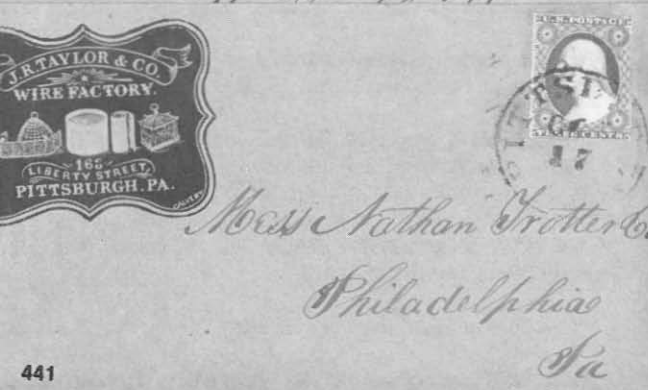 J.R. TAYLOR & CO.
WIRE FACTORY.
168
LIBERTY STREET,
PITTSBURGH. PA.
U.S. POSTAGE
THREE CENTS
17
Mess Nathan Trotter &Co.
Philadelphia
Pa
441